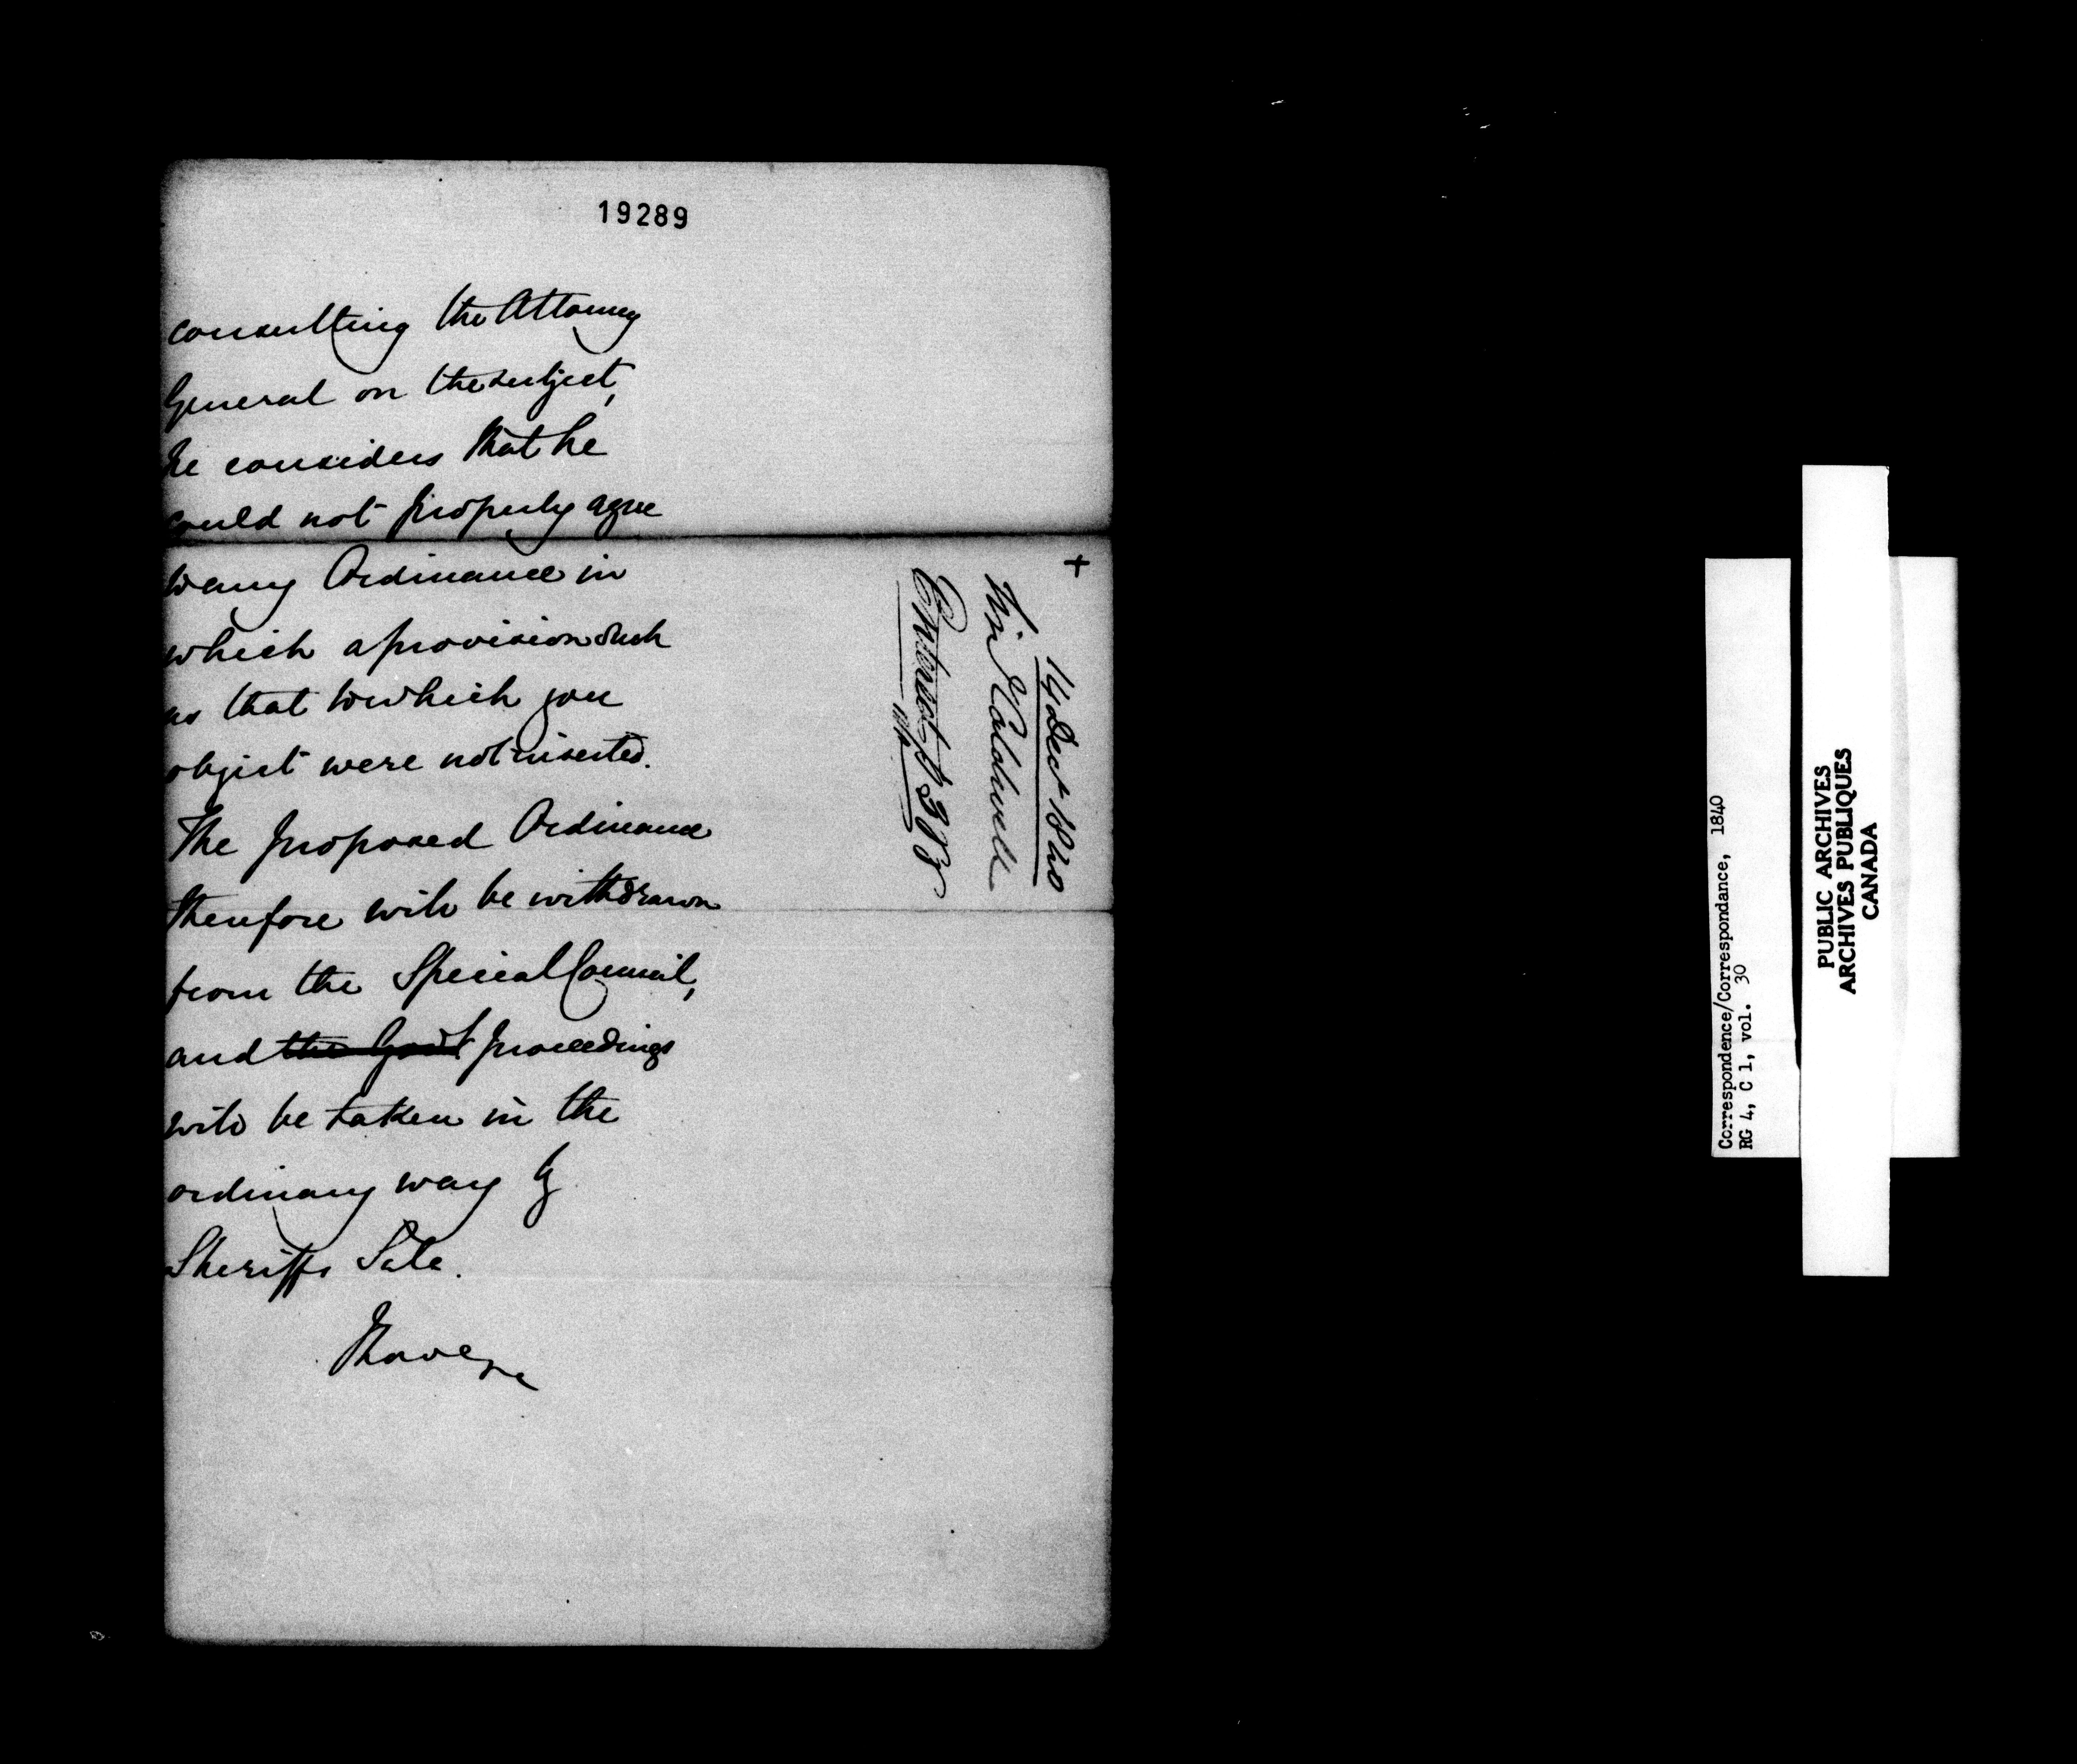 19289
consulting the Attorney
General on the subject,
he considers that he
could not properly agree
to any Ordinance in
which a provision such
as that to which you
object were not inserted.
The proposed Ordinance
therefore will be withdrawn
from the Special Council,
and the Govt proceedings
will be taken in the
ordinary way by
Sheriffs Sale.
I have &c
+
14 Decr 1840
Caldwell
Entered p
Correspondence/Correspondance, 1840
RG 4, C 1, vol. 30
PUBLIC ARCHIVES
ARCHIVES PUBLIQUES
CANADA